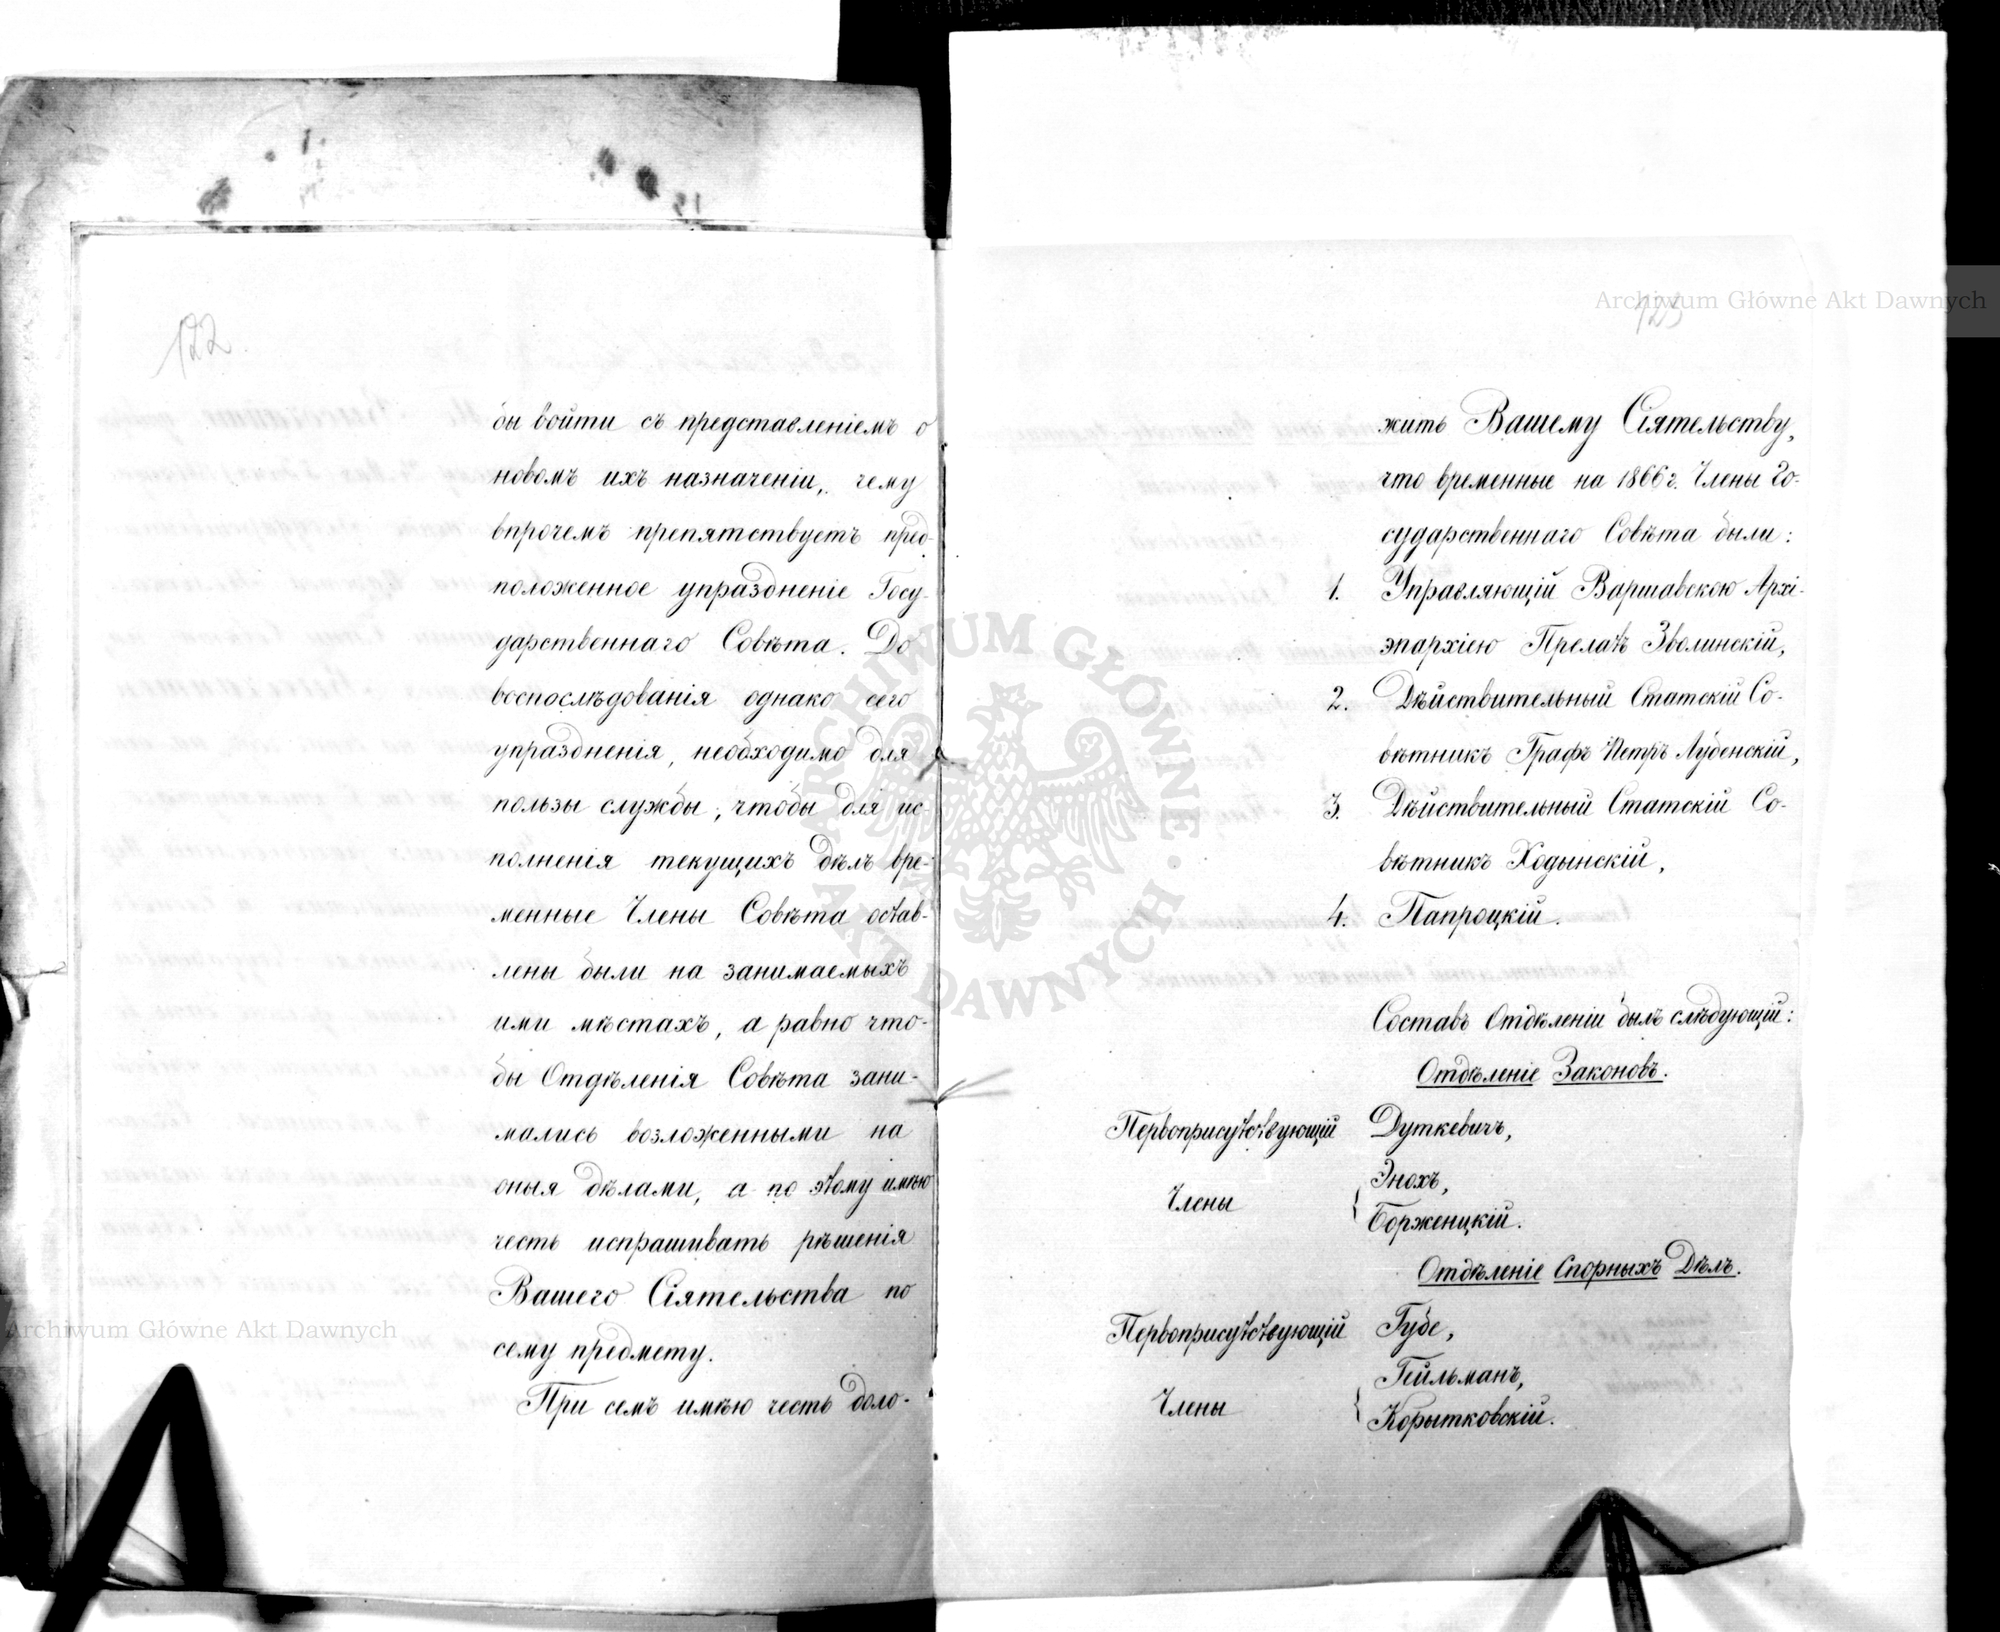 122
бы войти съ представленіемъ о
новомъ ихъ назначеніи, чему
впрочемъ препятствуетъ пред-
положенное упраздненіе Госу-
дарственнаго Совѣта. До
воспослѣдованія однако сего
упраздненія, необходимо для
пользы службы, чтобы для ис-
полненія текущихъ дѣлъ вре-
менные Члены Совѣта остав-
лены были на занимаемыхъ
ими мѣстахъ, а равно что-
бы Отдѣленія Совѣта зани-
мались возложенными на
оныя дѣлами, а по этому имѣю
честь испрашивать рѣшенія
Вашего Сіятельства по
сему предмету.
При семъ имѣю честь доло-
123
жить Вашему Сіятельству,
что временные на 1866 г. Члены Го-
сударственнаго Совѣта были:
1. Управляющій Варшавскою Архі-
эпархіею Прелатъ Зволинскій,
2. Дѣйствительный Статскій Со-
вѣтникъ Графъ Петръ Лубенскій,
3. Дѣйствительный Статскій Со-
вѣтникъ Ходынскій,
4. Папроцкій.
Составъ Отдѣленій былъ слѣдующій:
Отдѣленіе Законовъ.
Первоприсутствующій Дуткевичъ,
Члены { Энохъ,
Борженцкій.
Отдѣленіе Спорныхъ Дѣлъ.
Первоприсутствующій Губе,
Члены { Гейльманъ,
Корытковскій.
Archiwum Główne Akt Dawnych
Archiwum Główne Akt Dawnych
ARCHIWUM GŁÓWNE AKT DAWNYCH